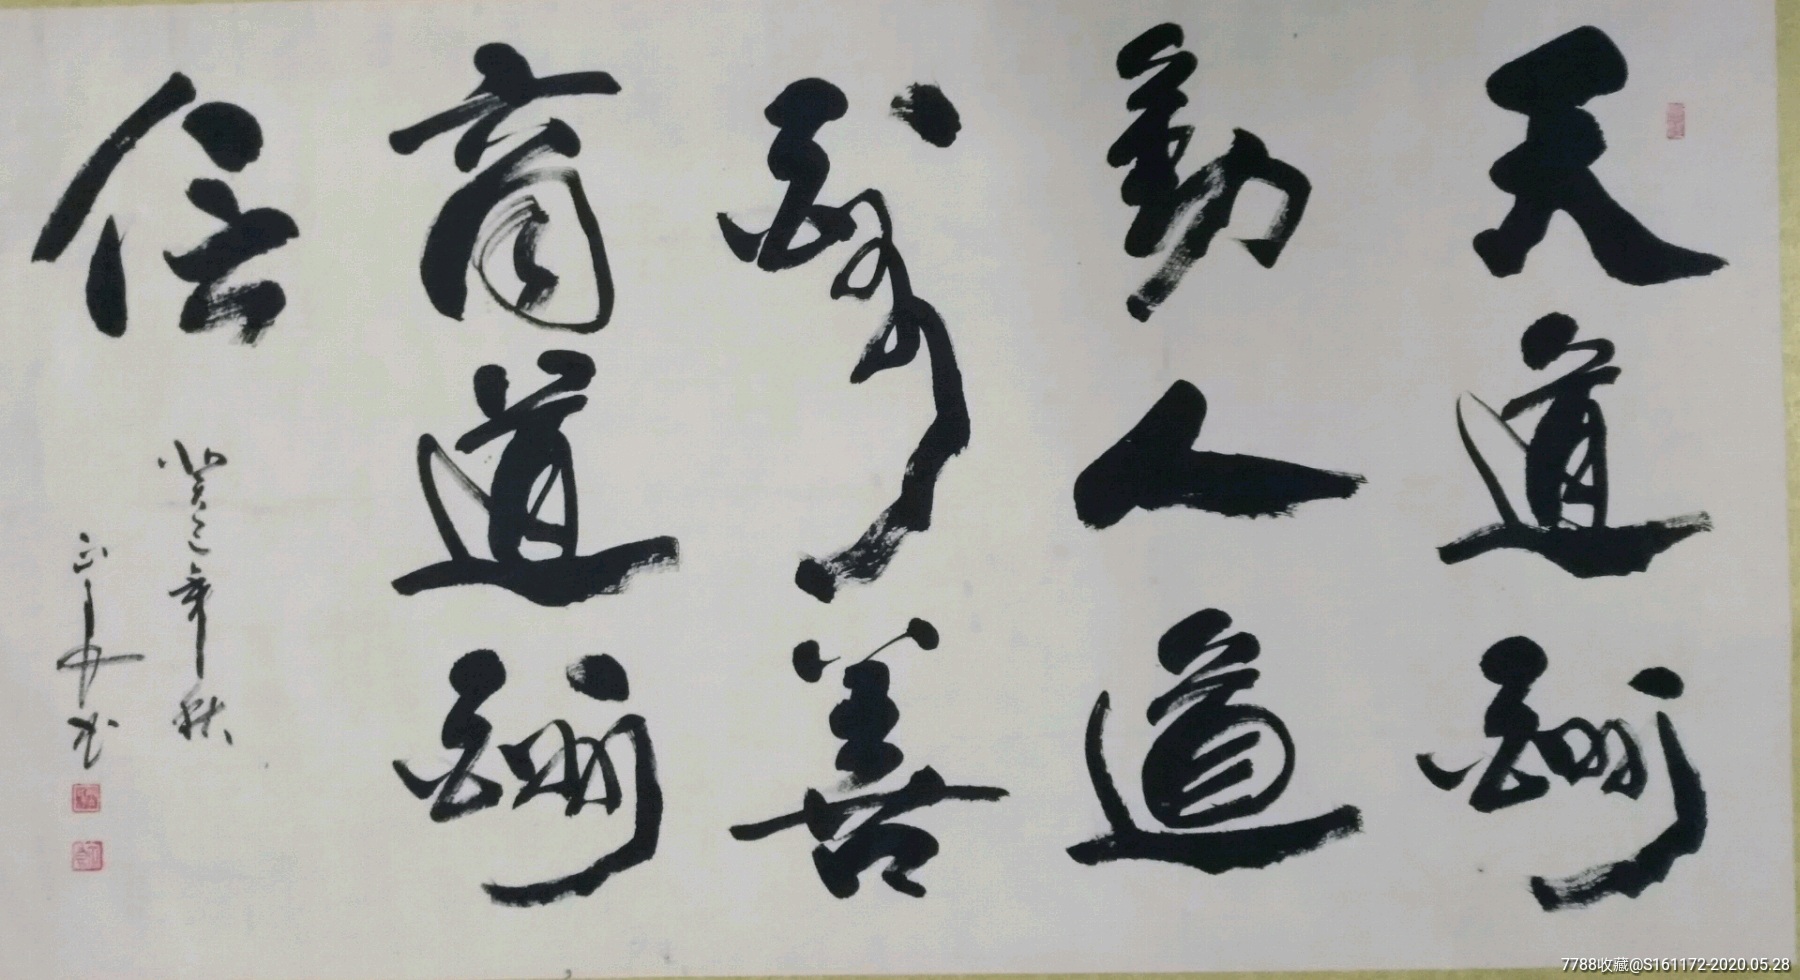 天道酬
勤人道
酬善
商道酬
信
癸巳年秋
7788收藏@S161172-2020.05.28